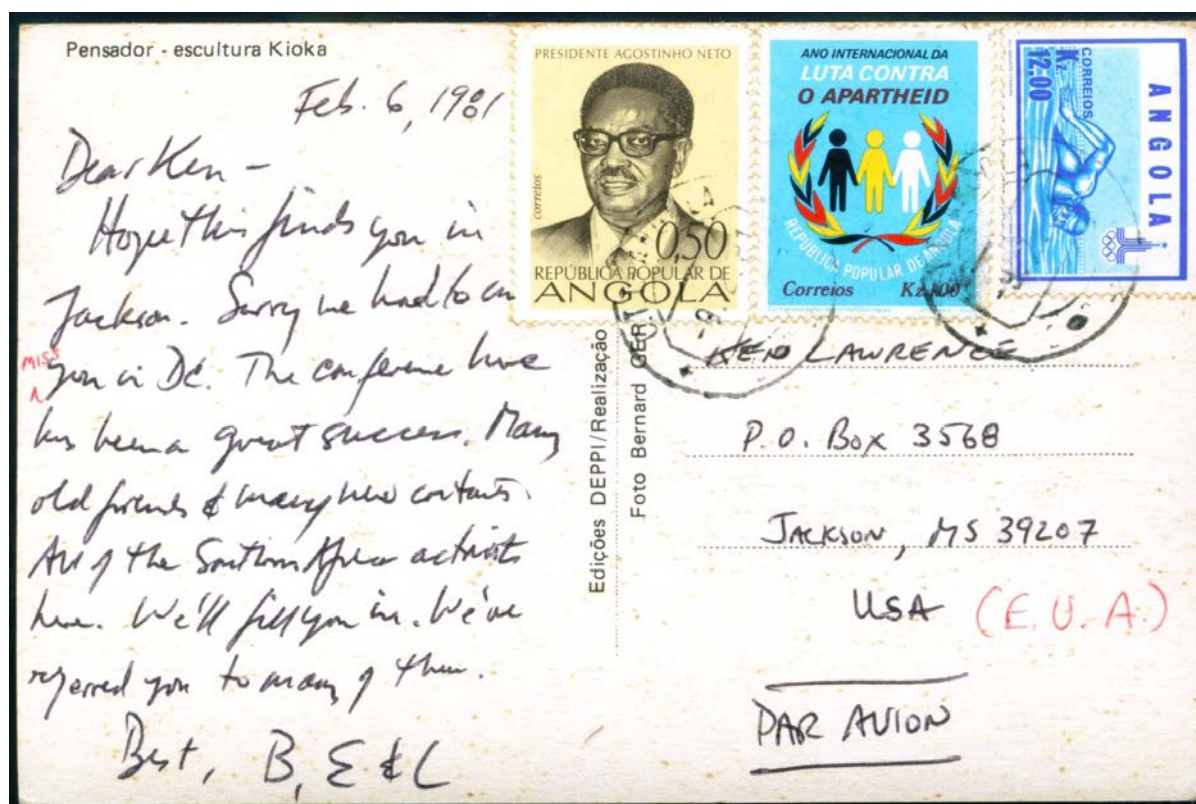 Pensador - escultura Kioka
Feb. 6, 1981
Dear Ken -
Hope this finds you in
Jackson. Sorry we had to
miss
you in DC. The conference here
has been a great success. Many
old friends & many new contacts.
All of the Southern Africa activists
here. We'll fill you in. We've
referred you to many of them.
Best, B, E & L
PRESIDENTE AGOSTINHO NETO
correios
0,50
REPÚBLICA POPULAR DE
ANGOLA
ANO INTERNACIONAL DA
LUTA CONTRA
O APARTHEID
REPÚBLICA POPULAR DE ANGOLA
Correios
ANGOLA
CORREIOS
Kz
12.00
Edições DEPPI/Realização
Foto Bernard GÉR
KEN LAWRENCE
P.O. Box 3568
JACKSON, MS 39207
USA (E.U.A.)
PAR AVION